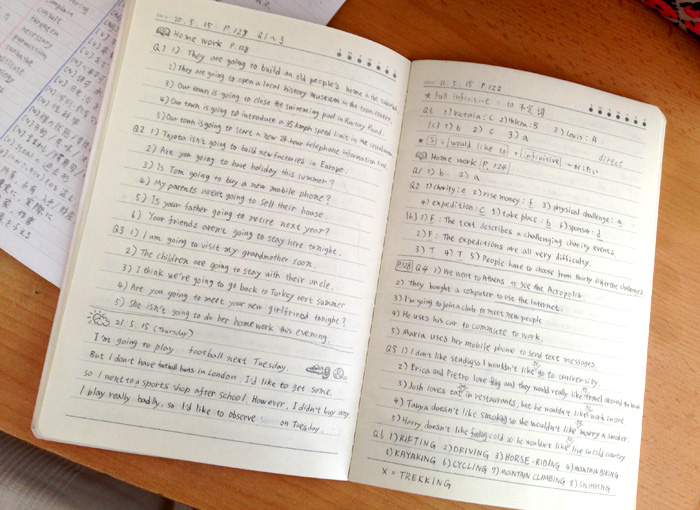 complain
threaten
necessary
permission
20.5.15 P.128 Q1~3
Home work P.128
Q1 1) They are going to build an old people's home in the
2) They are going to open a local history museum in the town centre.
3) Our town is going to close the swimming pool in Railway Road.
4) Our town is going to introduce a 35 kmph speed limit in the town
5) Our town is going to start a new 24 hour telephone information line
Q2 1) Toyota isn't going to build new factories in Europe.
2) Are you going to have holiday this summer?
3) Is Tom going to buy a new mobile phone?
4) My parents aren't going to sell their house.
5) Is your father going to retire next year?
6) Your friends aren't going to stay here tonight.
Q3 1) I am going to visit my grandmother soon.
2) The children are going to stay with their uncle.
3) I think we're going to go back to Turkey next summer
4) Are you going to meet your new girlfriend tonight?
5) She isn't going to do her homework this evening.
21.5.15 (Thursday)
I'm going to play football next Tuesday.
But I don't have football boots in London. I'd like to get some.
so I went to a sports shop after school. However, I didn't buy any
I play really badly, so I'd like to observe on Tuesday.
21.5.15 P.122
* full infinitive = to 不定词
Q6 1) Victoria: C 2) Milena: B 3) Louis: A
(c) 1) b 2) C 3) a
direct
* [S] + [would like to] + [infinitive]
Home work [P.124]
Q1 1) b 2) a
Q2 1) charity: e 2) raise money: f 3) physical challenge: a
4) expedition: c 5) take place: b 6) sponsor: d
(b) 1) F: The text describes a challenging charity events
2) F: The expeditions are all very difficulty.
3) T 4) T 5) People have to choose from thirty different challenges.
P128 Q4 1) We went to Athens to see the Acropolis
2) They bought a computer to use the Internet.
3) I'm going to join a club to meet new people
4) He uses his car to commute to work.
5) Maria uses her mobile phone to send text messages.
Q5 1) I don't like studying so I wouldn't like to go to university.
2) Erica and Pietro love and they would really like to travel around the world
3) Josh loves eating in restaurants, but he wouldn't like to work in one
4) Tanya doesn't like smoking so she wouldn't like to marry a smoker
5) Harry doesn't like feeling cold so he wouldn't like to live in cold country
Q6 1) RIFTING 2) DRIVING 3) HORSE-RIDING 4) MOUNTAIN BIKING
5) KAYAKING 6) CYCLING 7) MOUNTAIN CLIMBING 8) SWIMMING
X = TREKKING